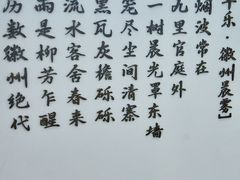 平乐·徽州晨雾》
烟波常在
九里官庭外
一树晨光罩东墙
尽尘间清寨
黑瓦灰檐砾砾
流水客舍春来
雨是柳芳乍醒
历数徽州绝代